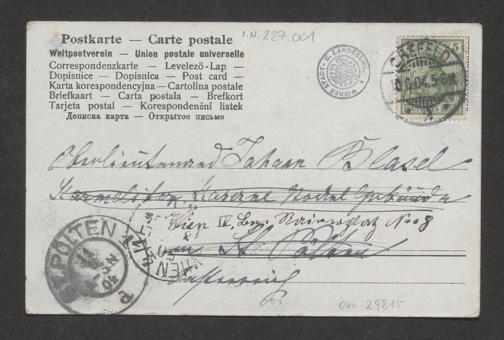 I.N. 227.001
Postkarte — Carte postale
Weltpostverein — Union postale universelle
Correspondenzkarte — Levelező-Lap —
Dopisnice — Dopisnica — Post card —
Karta korespondencyjna — Cartolina postale
Briefkaart — Carta postala — Brefkort
Tarjeta postal — Korespondenční listek
Дописна карта — Открытое письмо
CREFELD
5
Oberlieutenand Johann Blasel
Karmeliter Kaserne
Wien IV,
St. Pölten
ST. PÖLTEN
Österreich
044-29815